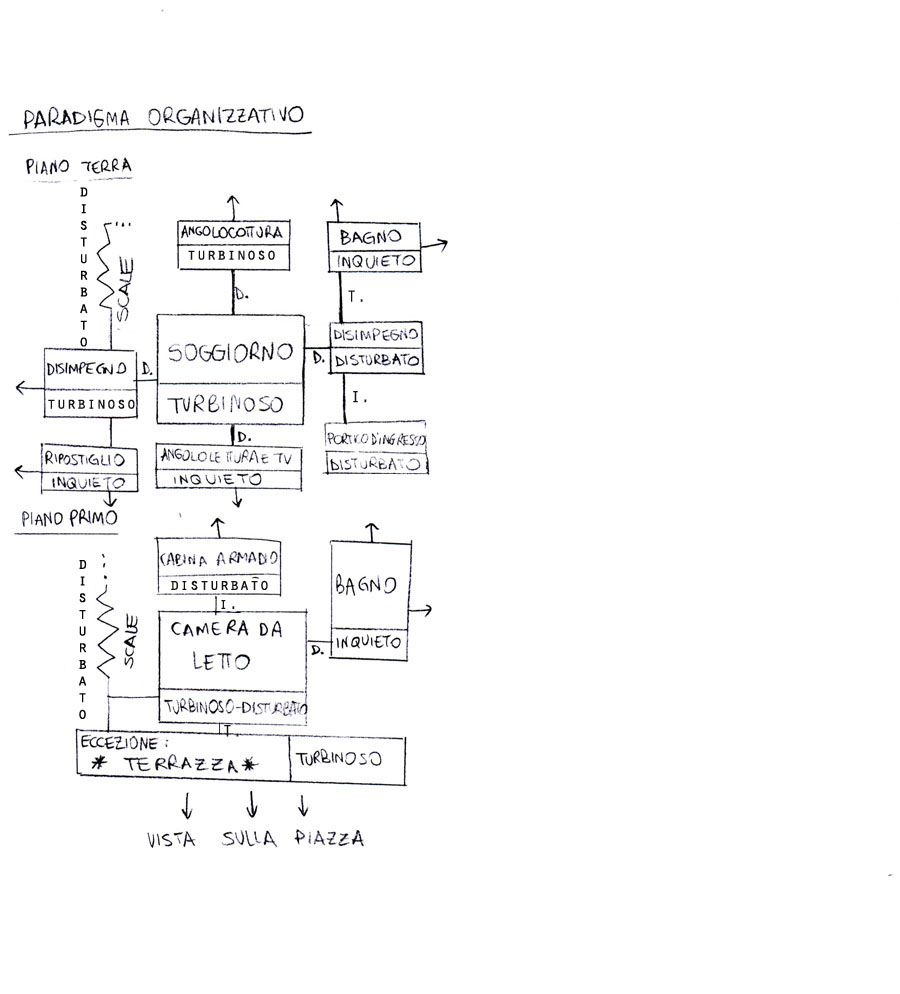 PARADIGMA ORGANIZZATIVO
PIANO TERRA
DISTURBATO
SCALE
ANGOLO COTTURA
TURBINOSO
BAGNO
INQUIETO
D.
T.
SOGGIORNO
TURBINOSO
D.
DISIMPEGNO
DISTURBATO
DISIMPEGNO
TURBINOSO
D.
I.
D.
PORTICO D'INGRESSO
DISTURBATO
RIPOSTIGLIO
INQUIETO
ANGOLO LETTURA E TV
INQUIETO
PIANO PRIMO
DISTURBATO
SCALE
CABINA ARMADIO
DISTURBATO
I.
BAGNO
INQUIETO
CAMERA DA
LETTO
TURBINOSO-DISTURBATO
D.
T.
ECCEZIONE:
* TERRAZZA *
TURBINOSO
VISTA SULLA PIAZZA